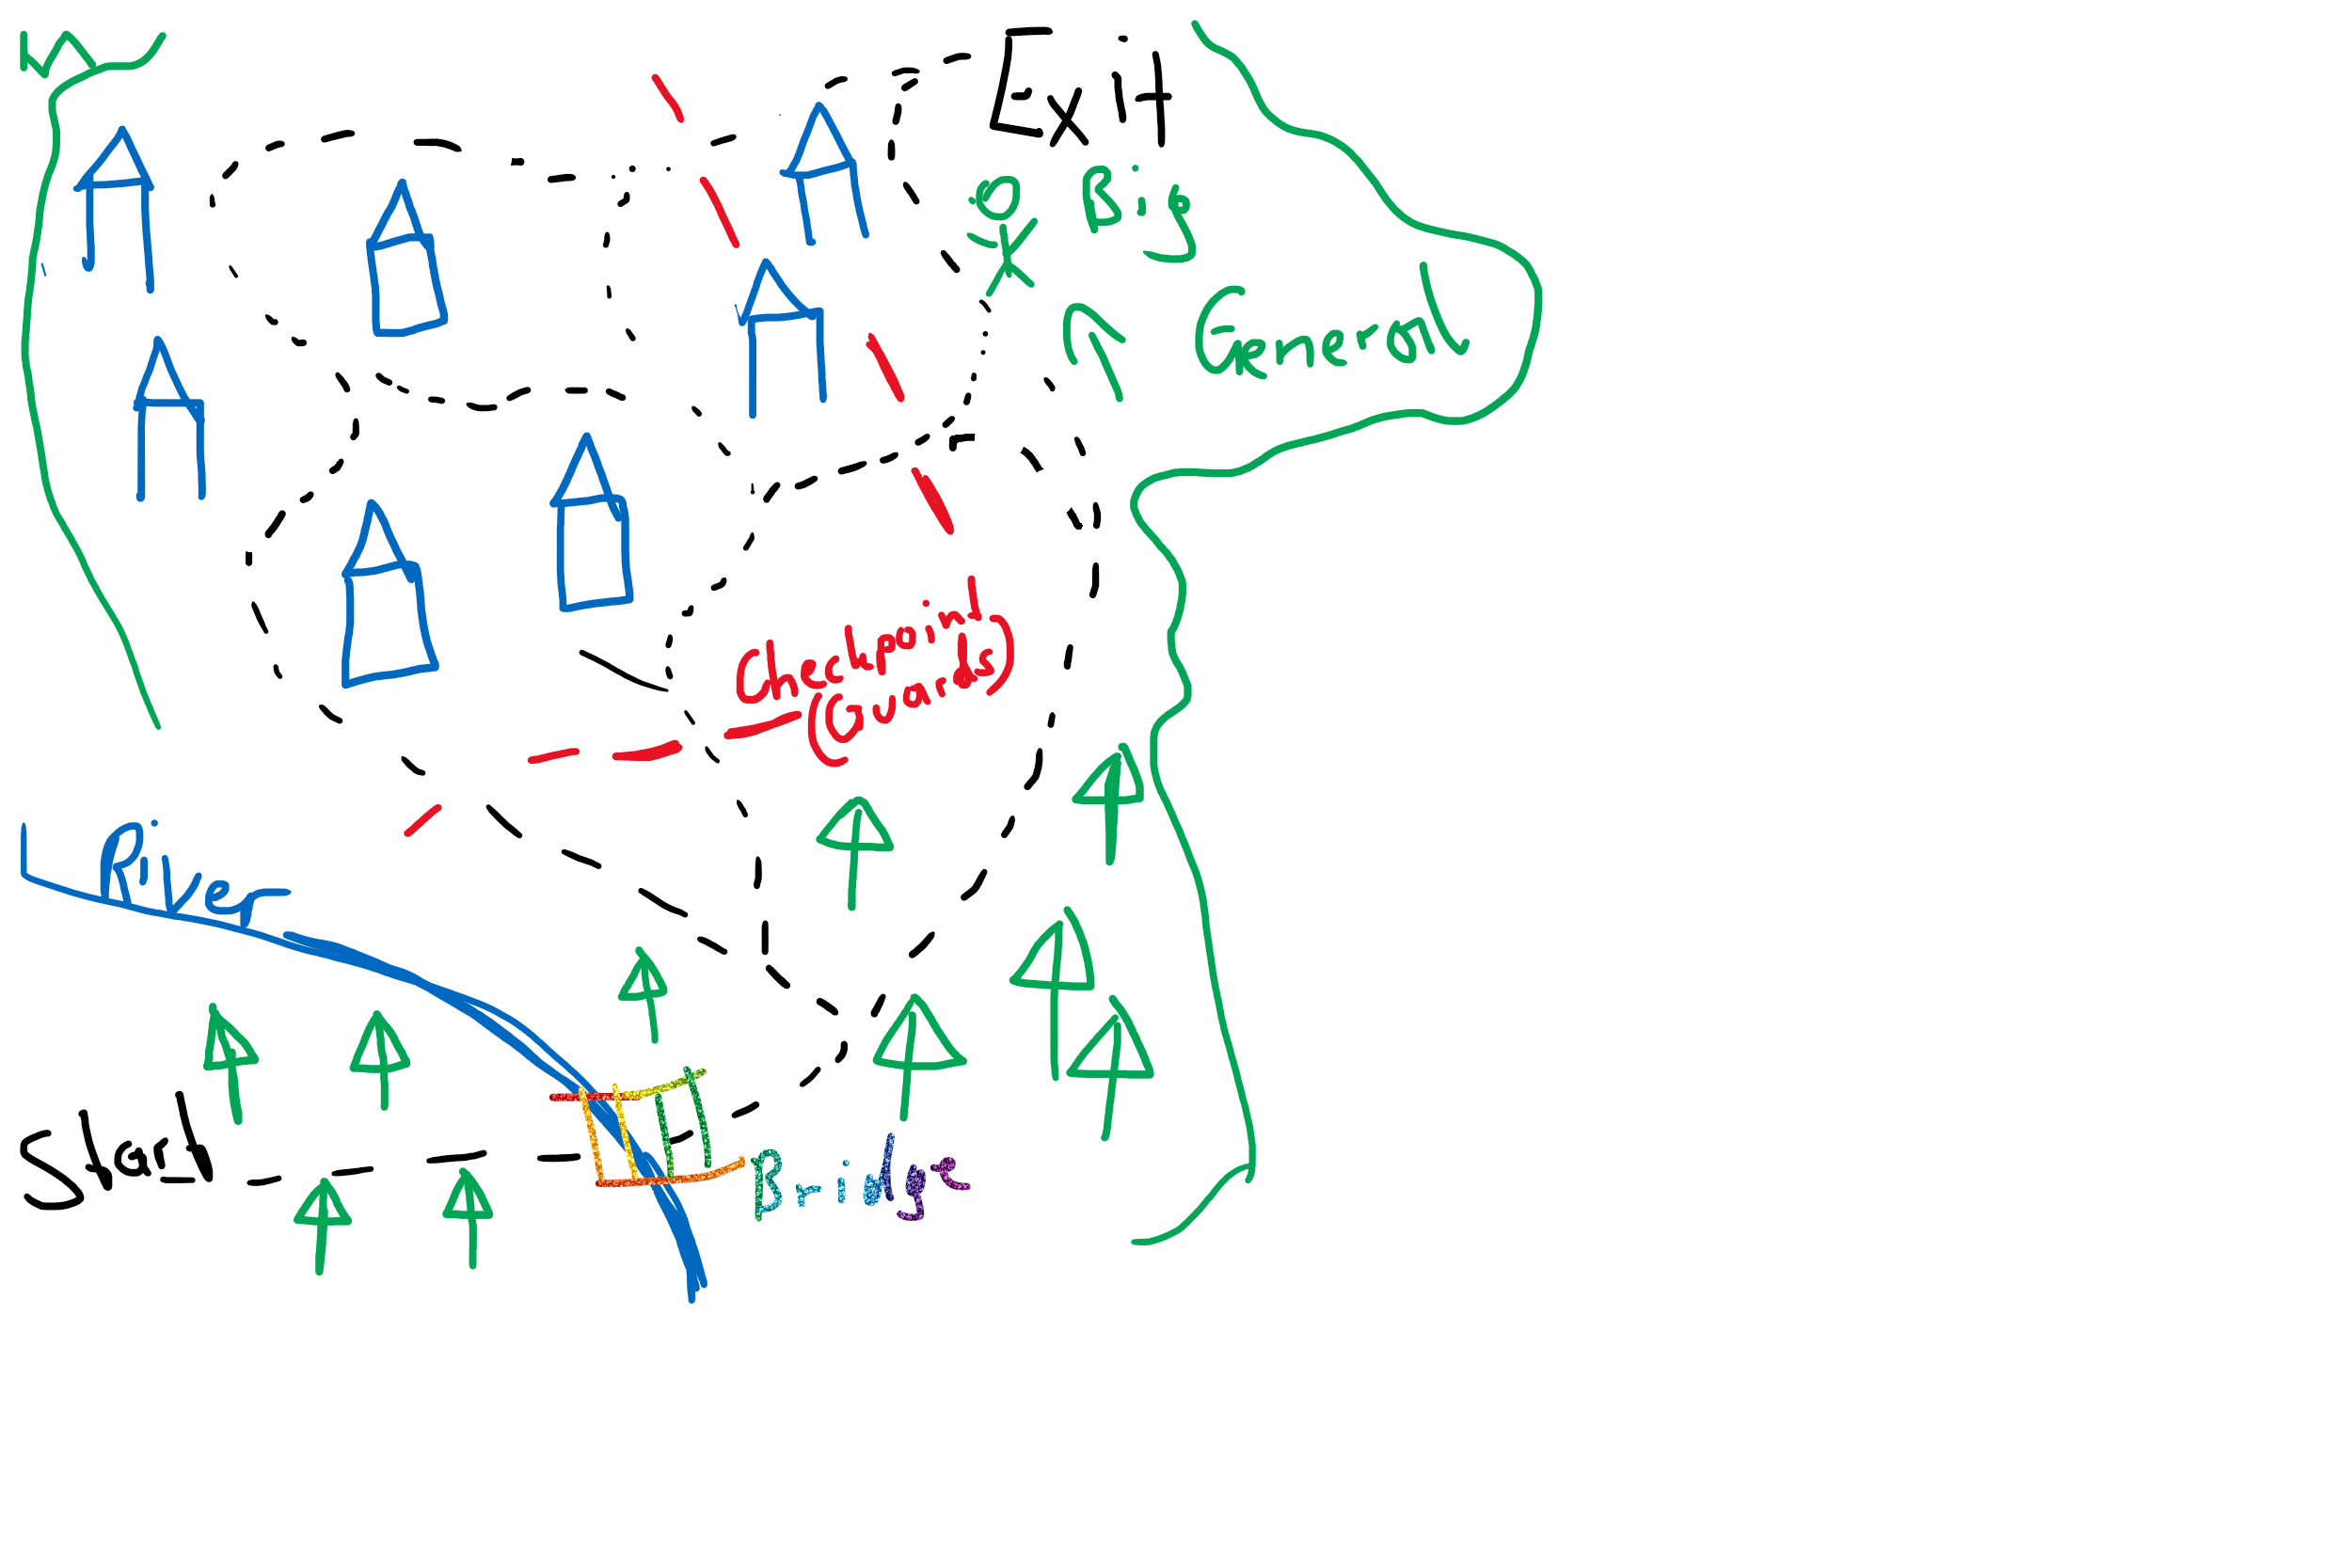 Exit
Big
General
Checkpoint
(Guards)
River
Start
Bridge